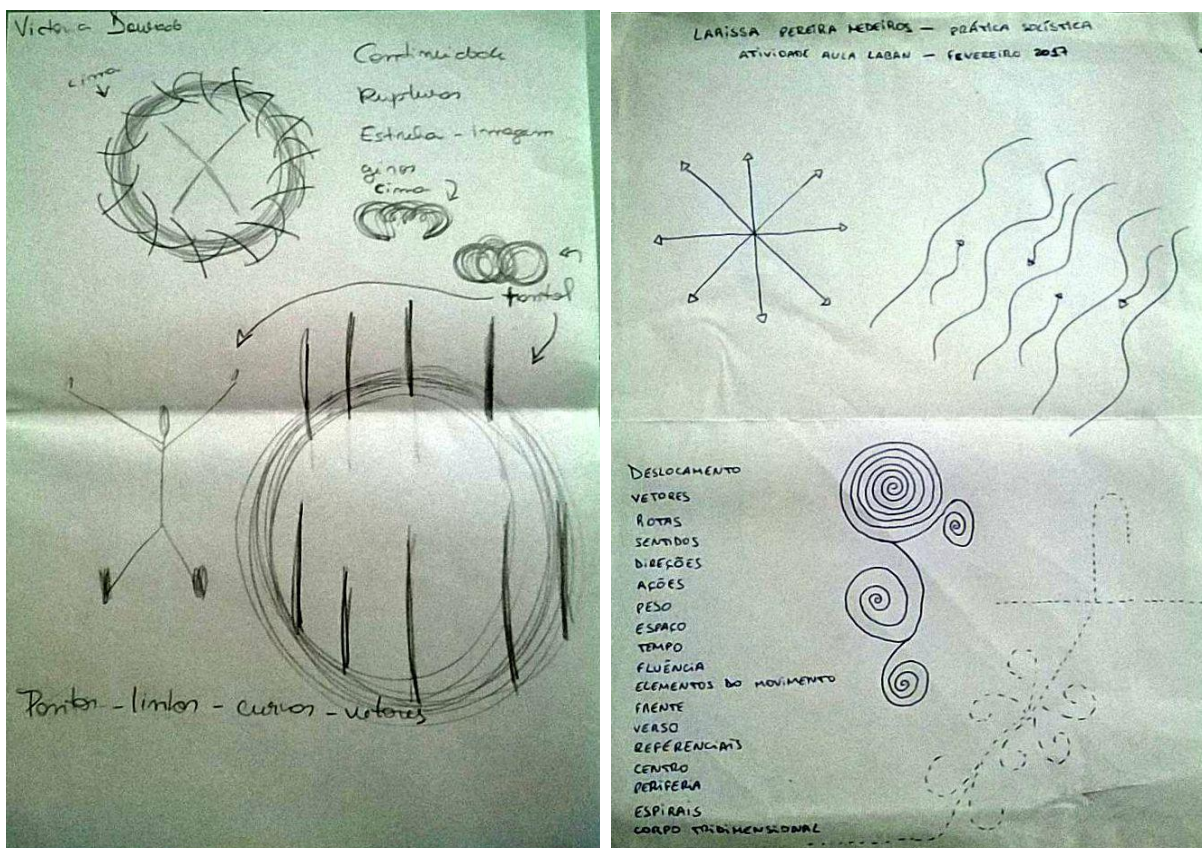 Victoria
cima
Continuidade
Rupturas
Estrela - imagem
giros
cima
frontal
Pontos - linhas - curvas - vetores
LARISSA PEREIRA MEDEIROS — PRÁTICA SOLÍSTICA
ATIVIDADE AULA LABAN — FEVEREIRO 2017
DESLOCAMENTO
VETORES
ROTAS
SENTIDOS
DIREÇÕES
AÇÕES
PESO
ESPAÇO
TEMPO
FLUÊNCIA
ELEMENTOS DO MOVIMENTO
FRENTE
VERSO
REFERENCIAIS
CENTRO
PERIFERIA
ESPIRAIS
CORPO TRIDIMENSIONAL